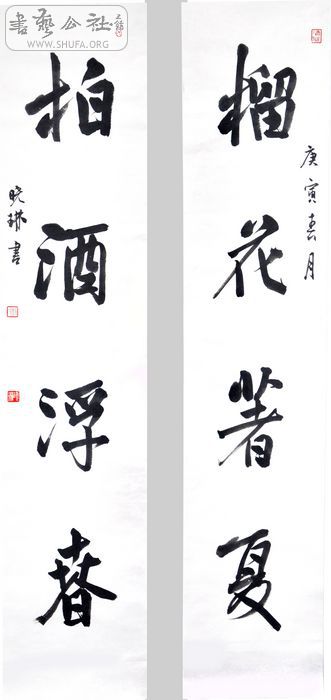 庚寅春月
榴花著夏
柏酒浮春
晓琳書
書藝公社
WWW.SHUFA.ORG